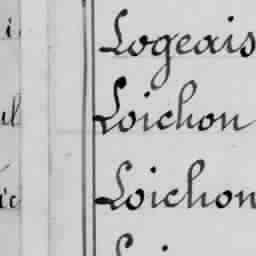 Logeais
Loichon
Loichon